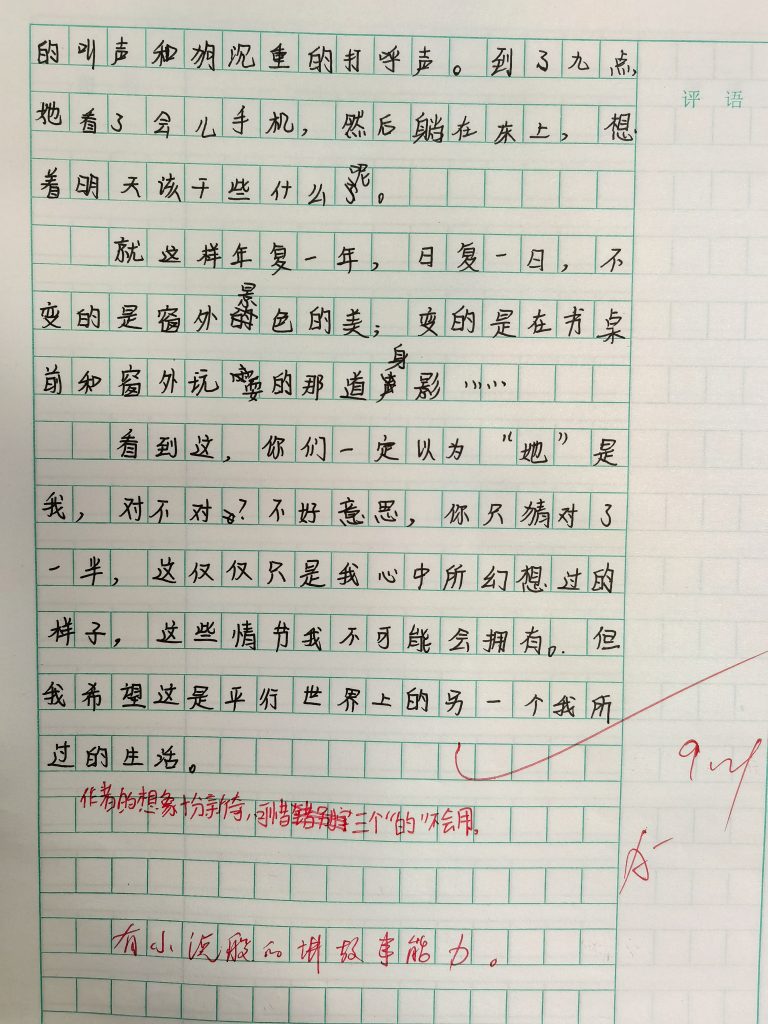 的叫声和狗沉重的打呼声。到了九点,
评语
她看了会儿手机，然后躺在床上，想
着明天该干些什么呢。
就这样年复一年，日复一日，不
变的是窗外景色的美；变的是在书桌
前和窗外玩耍的那道身影……
看到这，你们一定以为“她”是
我，对不对？不好意思，你只猜对了
一半，这仅仅只是我心中所幻想过的
样子，这些情节我不可能会拥有。但
我希望这是平行世界上的另一个我所
过的生活。
作者的想象十分新奇，可惜三个“的”不会用。
A-
有小说般的讲故事能力。